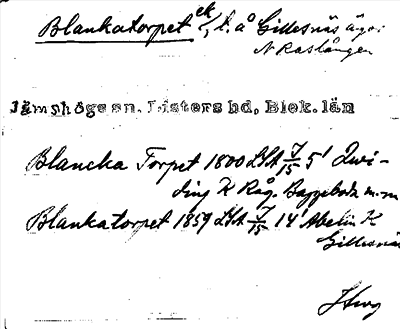 Blankatorpet ek/ l. å Gillesnäs ägor
N Raslången
Jämshögs sn. Listers hd, Blek. län
Blancka Torpet 1800 LSA 7/15 5' Qwi-
ding K Råg. Baggeboda m.m
Blankatorpet 1859 LSA 7/15 14' Abelin K
Gillesnäs